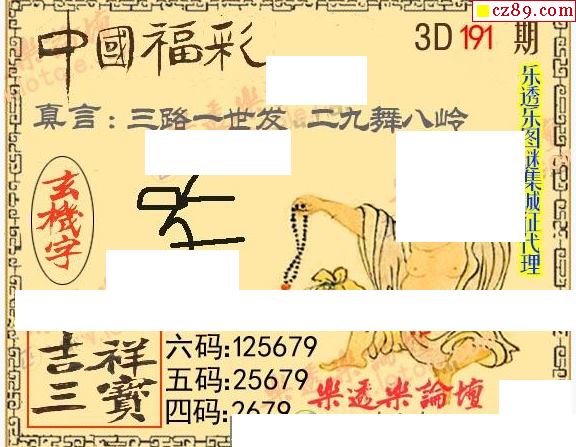 cz89.com
中國福彩
3D 191 期
真言:三路一世发 二九舞八岭
乐透乐图谜集城正代理
玄機字
吉祥
三寶
六码:125679
五码:25679
四码:2679
樂透樂論壇